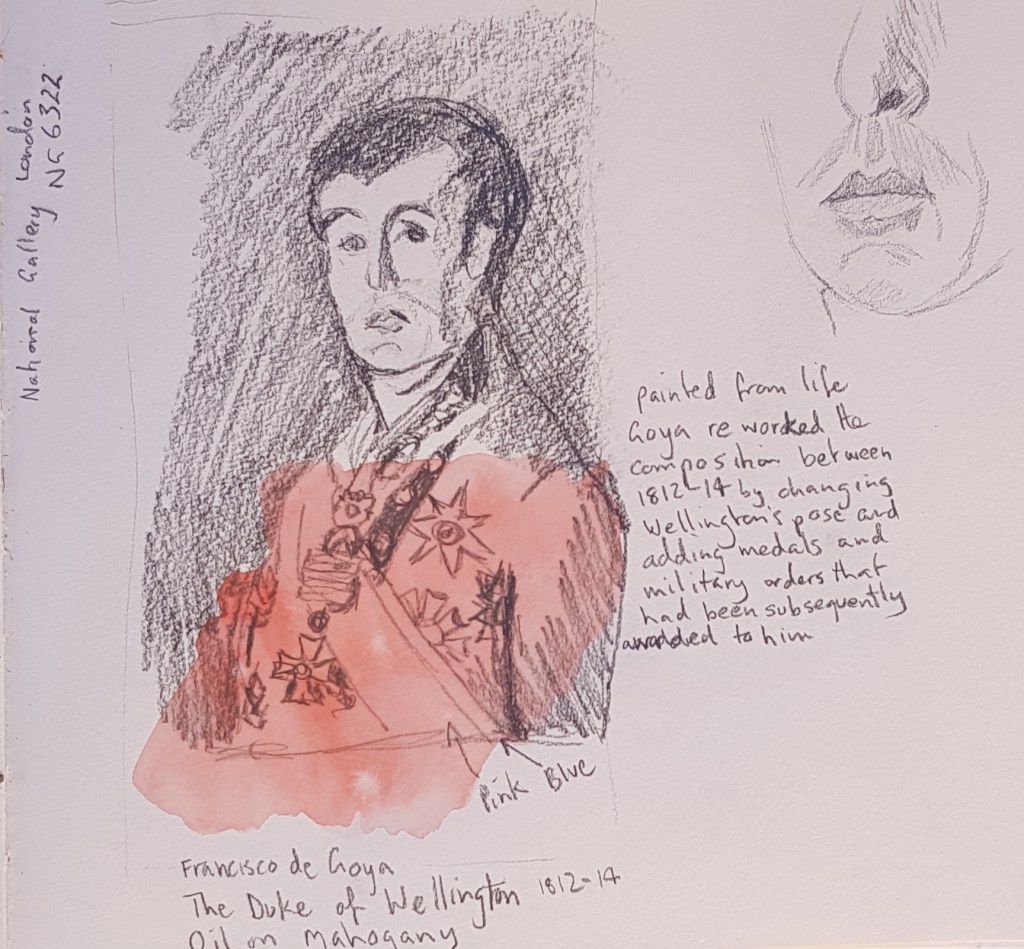 National Gallery London
NG 6322
painted from life
Goya re worked the
composition between
1812-14 by changing
Wellington's pose and
adding medals and
military orders that
had been subsequently
awarded to him
Pink Blue
Francisco de Goya
The Duke of Wellington 1812-14
Oil on Mahogany